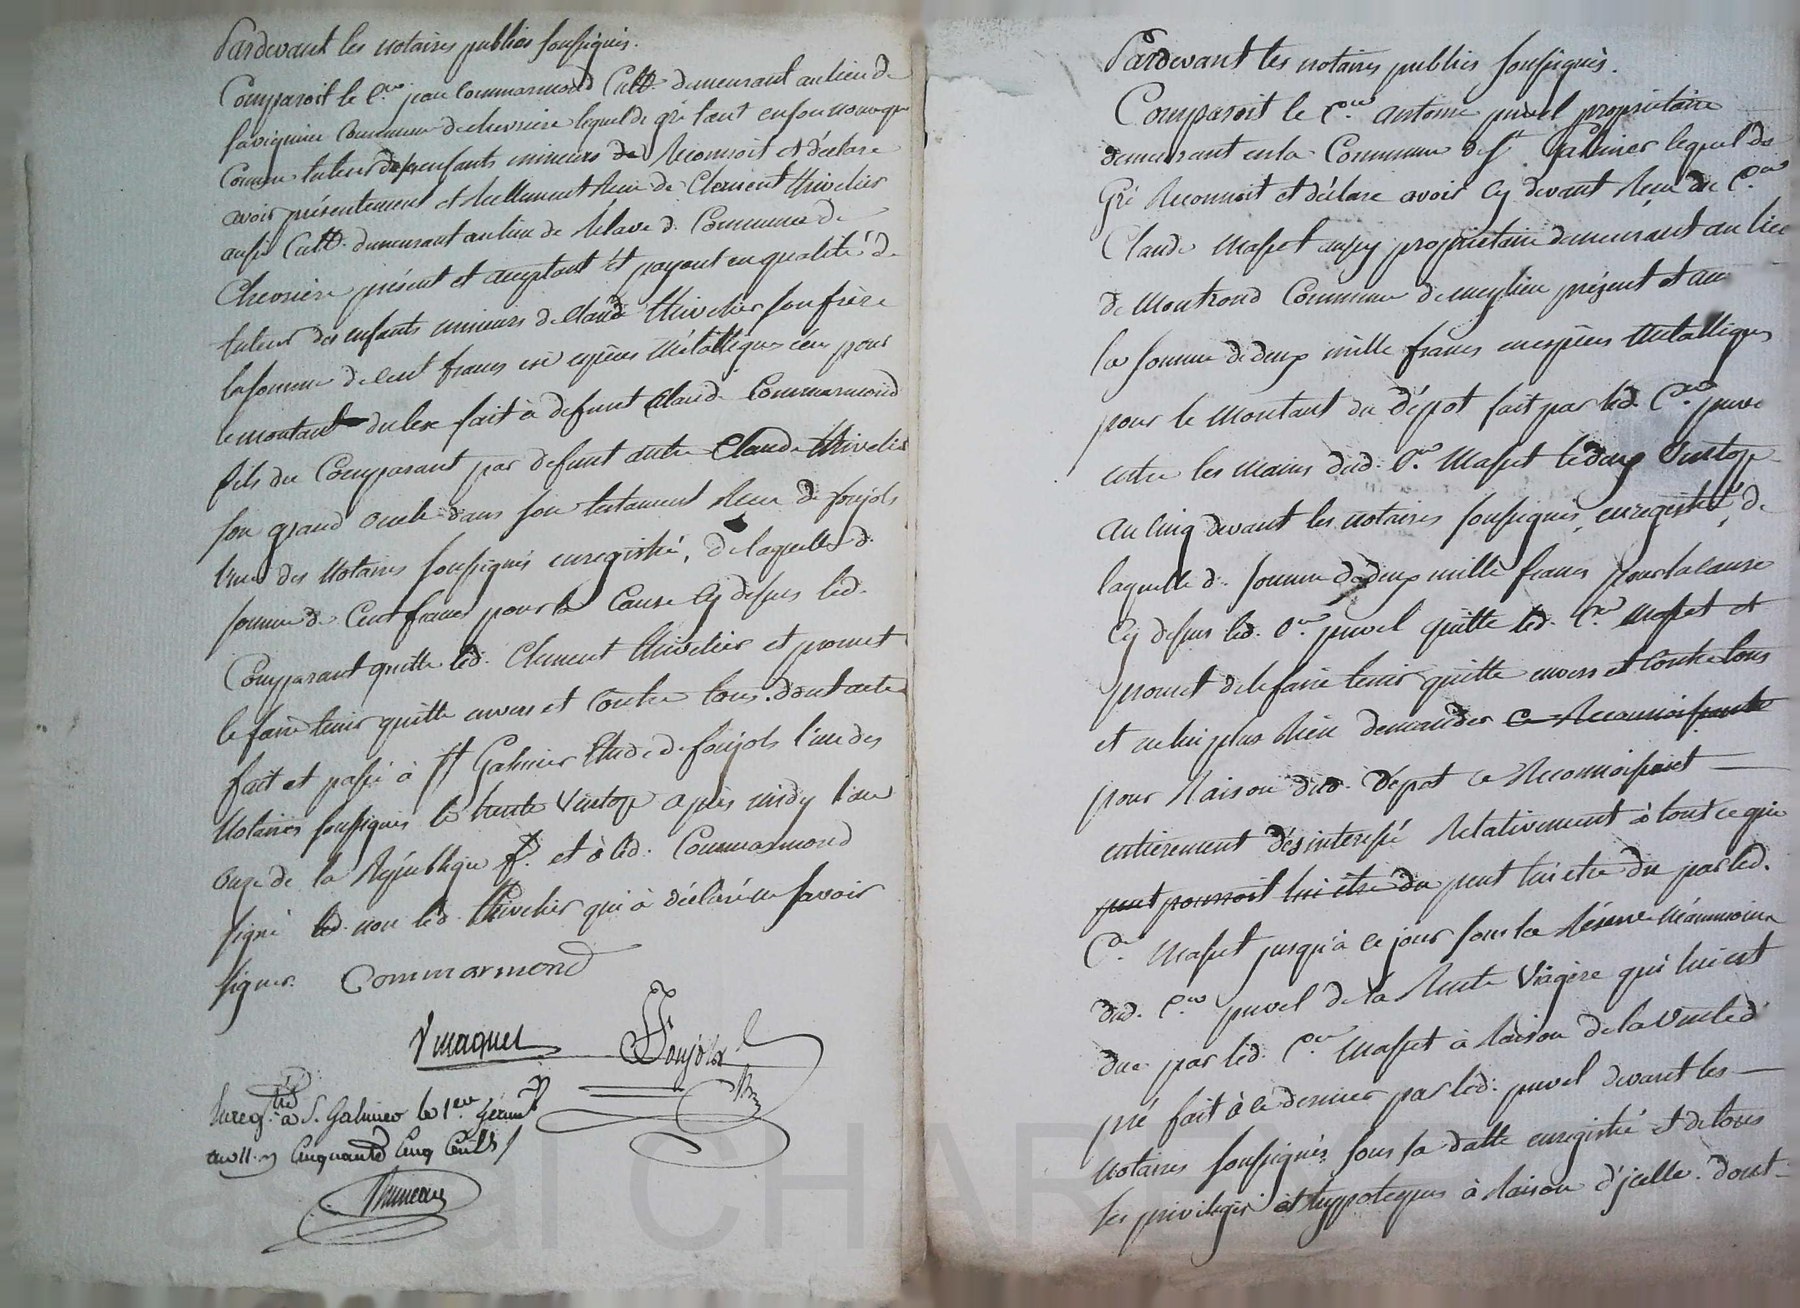 Pardevant les notaires publics soussignés.
Comparoit le C.en jean Commarmond Cult.r demeurant au lieu de
Commune de chevriere lequel de gré tant en son nom que
Comme tuteur de ses enfants mineurs de Reconnoit et déclare
avoir présentement et Réellement Reçu de Clement thivelier
aussi Cult.r demeurant au lieu de d. Commune de
Chevriere présent et acceptant et payant en qualité de
tuteur des enfants mineurs de Claude thivelier son frère
la somme de cent francs en espèces métalliques pour
le montant du legs fait à defunt Claude Commarmond
fils du Comparant par defunt autre Claude thivelier
son grand oncle dans son testament Reçu de foujols
l'un des Notaires soussignés enregistré, de laquelle d.
somme de Cent francs pour la Cause Cy dessus led.
Comparant quitte led. Clement thivelier et promet
le faire tenir quitte envers et contre tous. dont acte
fait et passé à St Galmier Etude de foujols l'un des
Notaires soussignés le trente Ventose après midy l'an
onze de la République f. et a led. Commarmond
signé led. non led. thivelier qui a déclaré ne savoir
signer. Commarmond
Vmaquet Foujols
Enreg.tré à S. Galmier le 1er Germ.l
an 11. Cinquante Cinq Cent.s
Pardevant les notaires publics soussignés.
Comparoit le C.en antoine puvel propriétaire
demeurant en la Commune de St Galmier lequel de
Gré Reconnoit et déclare avoir Cy devant Reçu du C.en
Claude Masset aussy propriétaire demeurant au lieu
de Montrond Commune de meylieu présent et acc
la somme de deux mille francs en espèces Métalliques
pour le Montant du Dépot fait par led. C.en puvel
entre les mains dud. C.en Masset le deux Ventose
an Cinq devant les notaires soussignés, enregistré, de
laquelle d. somme de deux mille francs pour la cause
Cy dessus led. C.en puvel quitte led. C.en Masset et
promet de le faire tenir quitte envers et Contre tous
et ne lui plus Rien demander ce Reconnoissante
pour Raison dud. Dépot ce Reconnoissant
entièrement désinteressé Relativement à tout ce qui
peut pourroit lui être dû peut lui etre du par led.
C.en Masset jusqu'à ce jour sous la Réserve Néanmoins
dud. C.en puvel de la Rente Viagère qui lui est
due par led. C.en Masset à Raison de la Vente d
pré fait à ce dernier par led. puvel devant les
Notaires soussignés sous sa datte enregistré et de tous
ses privileges et hyppoteques à Raison d'jcelle. dont